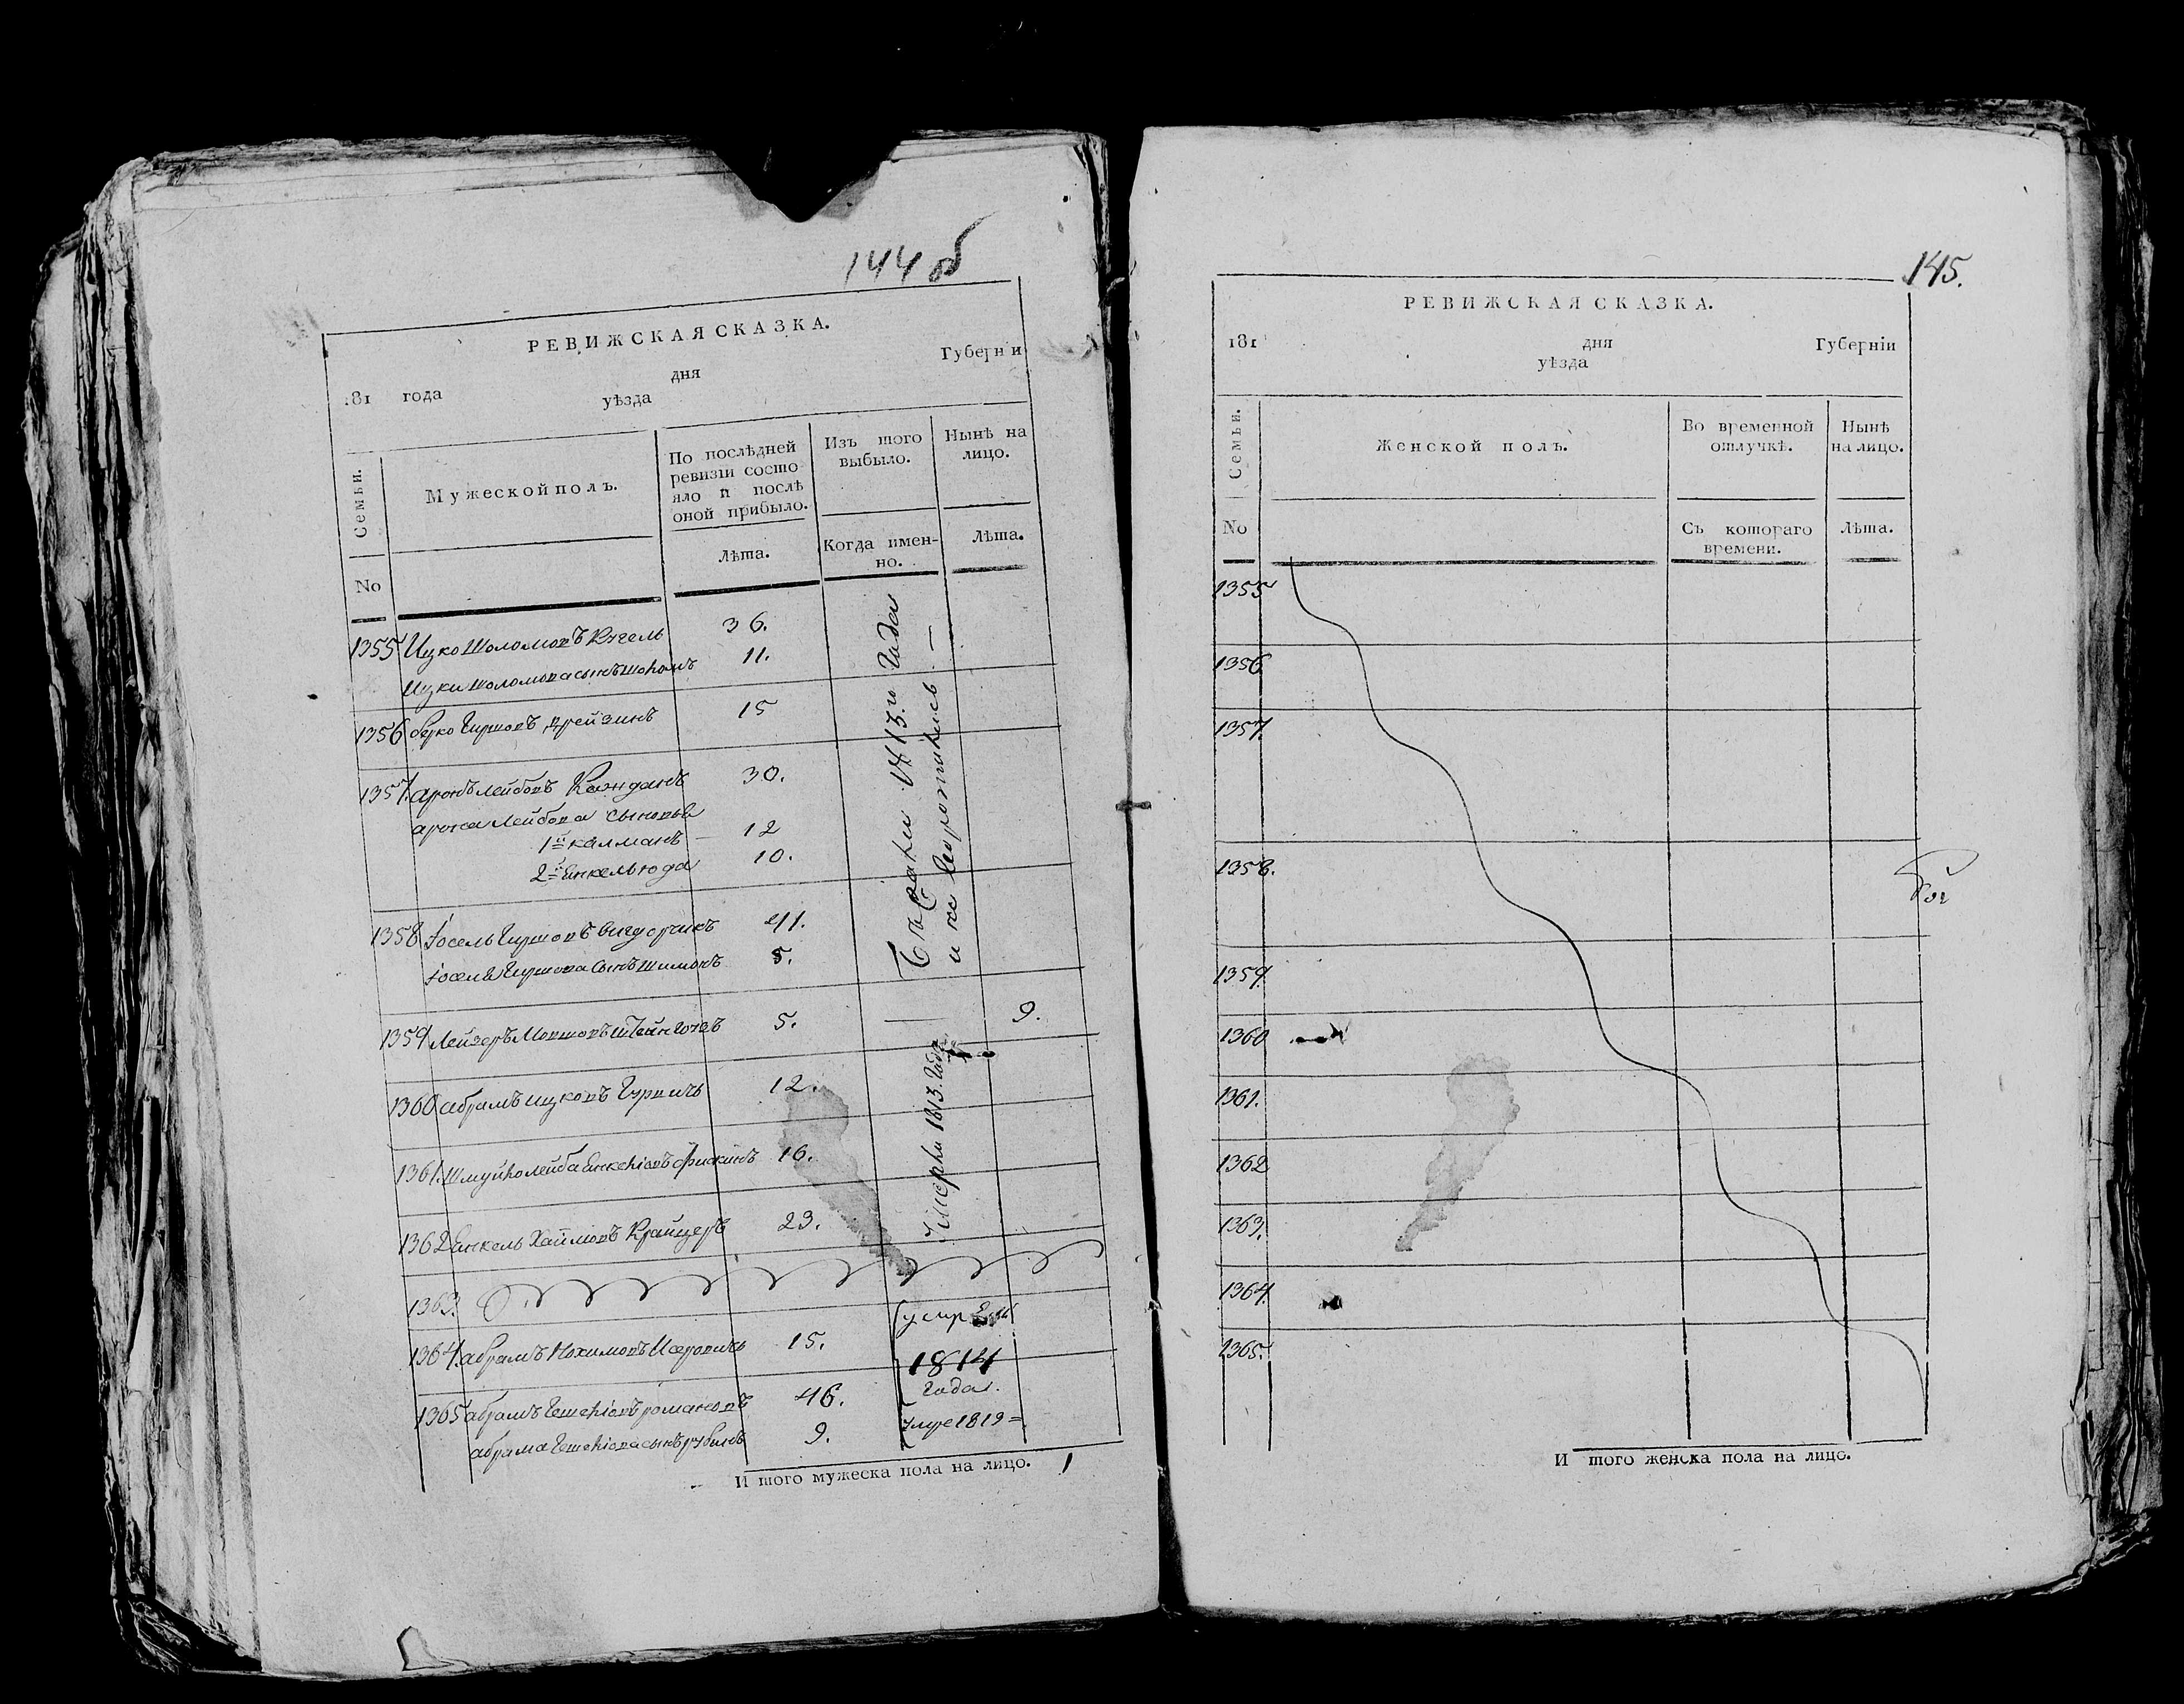 144 об
РЕВИЖСКАЯ СКАЗКА.
181 года дня Губерніи
уѣзда
Семьи.
Мужеской полъ.
По послѣдней ревизіи состояло и послѣ оной прибыло.
Изъ того выбыло.
Нынѣ на лицо.
No
Лѣта.
Когда именно.
Лѣта.
1355 Ицко Шоломовъ Кугель 36.
Ицки Шоломова сынъ Шоломъ 11.
1356 Берко Гиршовъ Дрейзинъ 15
1357. Аронъ Лейбовъ Каэнданъ 30.
Арона Лейбова сыновья
1й Калманъ 12
2й Енкель юда 10.
Бежали 1813го Года
и не возротились
1358 Іосель Гиршовъ Вигдорчикъ 41.
Іоселя Гиршова сынъ Шимонъ 5.
1359 Лейзеръ Мовшовъ 5. 9.
1360 Абрамъ Ицковъ Гурвичъ 12.
1361. Шмуйло Лейба Енкелiовъ 16.
1362 Енкель Хаймовъ Крайцеръ 23.
Умерли 1813. Года
1363.
1364. Абрамъ Нохимовъ Исеровичъ 15.
1814
Года.
1365 Абрамъ Гешелiовъ Романовъ 46.
Абрама Гешелiова сынъ Рубинъ 9.
И того мужеска пола на лицо. 1
145.
РЕВИЖСКАЯ СКАЗКА.
181 дня Губерніи
уѣзда
Семьи.
Женской полъ.
Во временной отлучкѣ.
Нынѣ на лицо.
No
Съ котораго времени.
Лѣта.
1355
1356
1357.
1358.
1359.
1360
1361.
1362
1363.
1364.
1365.
И того женска пола на лицо.